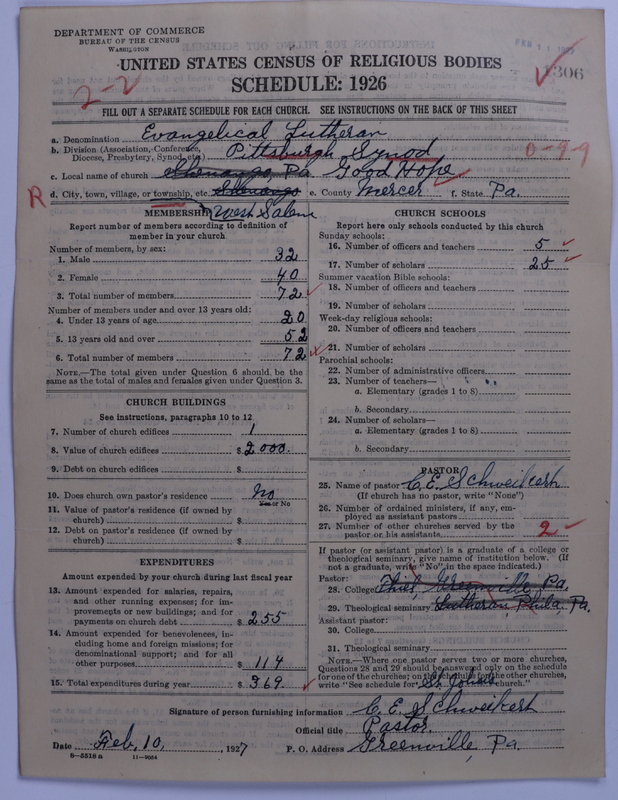 DEPARTMENT OF COMMERCE
BUREAU OF THE CENSUS
WASHINGTON
UNITED STATES CENSUS OF RELIGIOUS BODIES
SCHEDULE: 1926
2-2
306
FILL OUT A SEPARATE SCHEDULE FOR EACH CHURCH. SEE INSTRUCTIONS ON THE BACK OF THIS SHEET
a. Denomination Evangelical Lutheran
b. Division (Association, Conference, Diocese, Presbytery, Synod, etc.) Pittsburgh Synod
0-9-9
c. Local name of church Shenango, Pa. Good Hope
R
d. City, town, village, or township, etc. Shenango e. County Mercer f. State Pa.
West Salem
MEMBERSHIP
Report number of members according to definition of
member in your church
Number of members, by sex:
1. Male 32
2. Female 40
3. Total number of members 72
Number of members under and over 13 years old:
4. Under 13 years of age 20
5. 13 years old and over 52
6. Total number of members 72
NOTE.—The total given under Question 6 should be the
same as the total of males and females given under Question 3.
CHURCH BUILDINGS
See instructions, paragraphs 10 to 12
7. Number of church edifices 1
8. Value of church edifices $ 2000.
9. Debt on church edifices $
10. Does church own pastor's residence No
Yes or No
11. Value of pastor's residence (if owned by
church) $
12. Debt on pastor's residence (if owned by
church) $
EXPENDITURES
Amount expended by your church during last fiscal year
13. Amount expended for salaries, repairs,
and other running expenses; for im-
provements or new buildings; and for
payments on church debt $ 255
14. Amount expended for benevolences, in-
cluding home and foreign missions; for
denominational support; and for all
other purposes 114
15. Total expenditures during year $ 369
CHURCH SCHOOLS
Report here only schools conducted by this church
Sunday schools:
16. Number of officers and teachers 5
17. Number of scholars 25
Summer vacation Bible schools:
18. Number of officers and teachers
19. Number of scholars
Week-day religious schools:
20. Number of officers and teachers
21. Number of scholars
Parochial schools:
22. Number of administrative officers
23. Number of teachers—
a. Elementary (grades 1 to 8)
b. Secondary
24. Number of scholars—
a. Elementary (grades 1 to 8)
b. Secondary
PASTOR
25. Name of pastor C. E. Schweikert
(If church has no pastor, write "None")
26. Number of ordained ministers, if any, em-
ployed as assistant pastors
27. Number of other churches served by the
pastor or his assistants 2
If pastor (or assistant pastor) is a graduate of a college or
theological seminary, give name of institution below. (If
not a graduate, write "No" in the space indicated.)
Pastor:
28. College Thiel, Greenville, Pa.
29. Theological seminary Lutheran Phila. Pa.
Assistant pastor:
30. College
31. Theological seminary
NOTE.—Where one pastor serves two or more churches,
Questions 28 and 29 should be answered only on the schedule
for one of the churches; on the schedules for the other churches,
write "See schedule for St. Johns church."
Signature of person furnishing information C. E. Schweikert
Official title Pastor.
Date Feb. 10, 1927 P. O. Address Greenville, Pa.
8-5518 a 11-9064